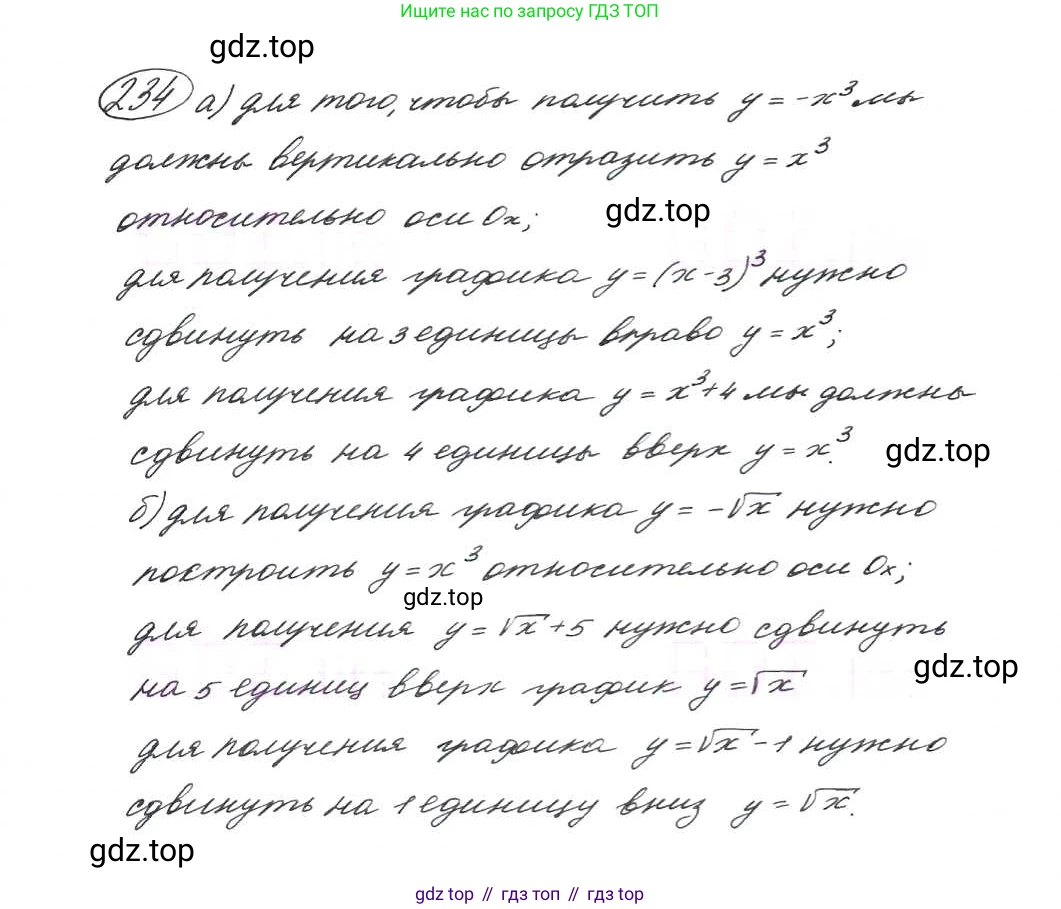 Ищите нас по запросу ГДЗ ТОП
gdz.top
234 а) для того, чтобы получить y = -x³ мы
должны вертикально отразить y = x³
относительно оси Ox;
gdz.top
для получения графика y = (x-3)³ нужно
сдвинуть на 3 единицы вправо y = x³;
для получения графика y = x³+4 мы должны
сдвинуть на 4 единицы вверх y = x³.
gdz.top
б) для получения графика y = -√x нужно
построить y = x³ относительно оси Ox;
gdz.top
для получения y = √x + 5 нужно сдвинуть
gdz.top
на 5 единиц вверх график y = √x
для получения графика y = √x - 1 нужно
сдвинуть на 1 единицу вниз y = √x.
gdz.top
gdz top // гдз топ // гдз top